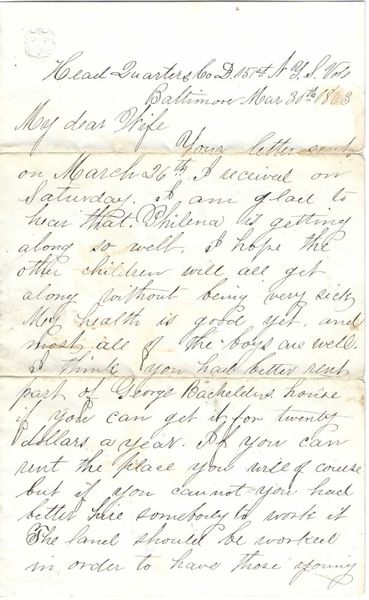 Head Quarters Co D. 151st N.Y.S. Vols
Baltimore Mar 30th 1863
My dear Wife
Your letter sent
on March 26th I received on
Saturday. I am glad to
hear that Philena is getting
along so well. I hope the
other children will all get
along without being very sick
My health is good yet and
most all of the boys are well.
I think you had better rent
part of George Bachelders house
if you can get it for twenty
dollars a year. If you can
rent the place you will of course
but if you cannot you had
better hire somebody to work it
The land should be worked
in order to have those young